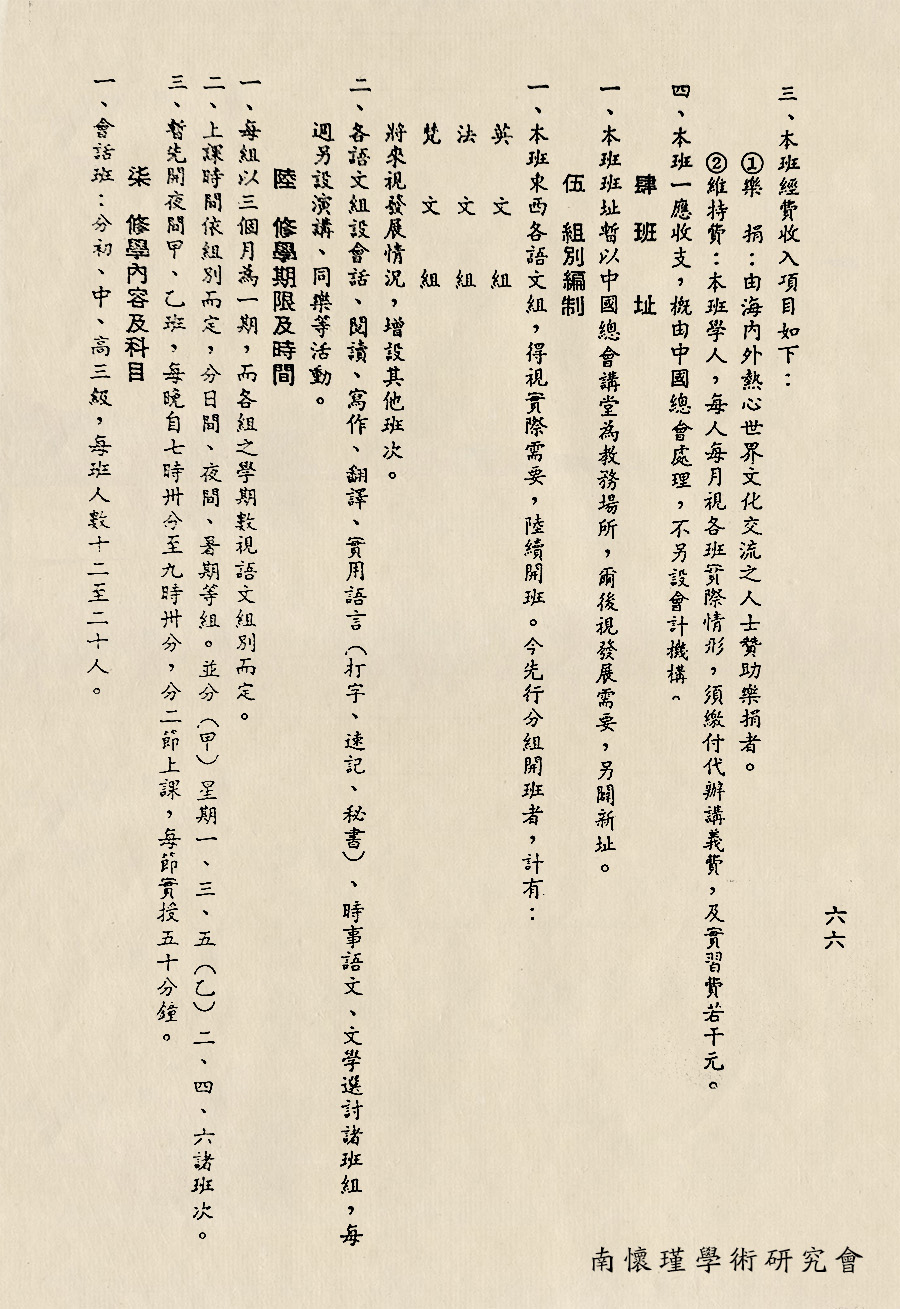 六六
三、本班經費收入項目如下：
①樂　捐：由海內外熱心世界文化交流之人士贊助樂捐者。
②維持費：本班學人，每人每月視各班實際情形，須繳付代辦講義費，及實習費若干元。
四、本班一應收支，概由中國總會處理，不另設會計機構。
肆　班　址
一、本班班址暫以中國總會講堂為教務場所，爾後視發展需要，另闢新址。
伍　組別編制
一、本班東西各語文組，得視實際需要，陸續開班。今先行分組開班者，計有：
英　文　組
法　文　組
梵　文　組
將來視發展情況，增設其他班次。
二、各語文組設會話、閱讀、寫作、翻譯、實用語言（打字、速記、秘書）、時事語文、文學選討諸班組，每
週另設演講、同樂等活動。
陸　修學期限及時間
一、每組以三個月為一期，而各組之學期數視語文組別而定。
二、上課時間依組別而定，分日間、夜間、暑期等組。並分（甲）星期一、三、五（乙）二、四、六諸班次。
三、暫先開夜間甲、乙班，每晚自七時卅分至九時卅分，分二節上課，每節實授五十分鐘。
柒　修學內容及科目
一、會話班：分初、中、高三級，每班人數十二至二十人。
南懷瑾學術研究會